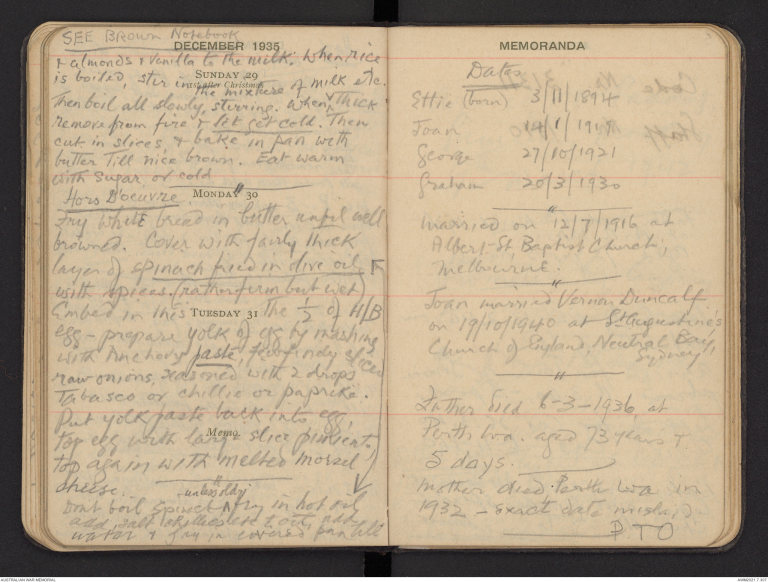 SEE Brown Notebook
DECEMBER 1935
& almonds & vanilla to the milk. When rice
SUNDAY 29
1st after Christmas
is boiled, stir in the mixture of milk etc.
Then boil all slowly, stirring. When thick
remove from fire & let get cold. Then
cut in slices, & bake in pan with
butter till nice brown. Eat warm
with sugar or cold
Hors D'oeuvre.
MONDAY 30
Fry white bread in butter until well
browned. Cover with fairly thick
layer of spinach fried in olive oil
with spices. (rather firm but wet)
Embed in this the ½ of H/B
TUESDAY 31
egg – prepare yolk of eg by mashing
with Anchovy paste, finely sliced
raw onions, seasoned with 2 drops
Tabasco or chillie or paprika.
Put yolk paste back into egg,
Memo.
top egg with large slice pimient,
top again with melted morsel
cheese.
unless oldy
Dont boil spinach fry in hot oil
add salt
water & fry in covered pan till
MEMORANDA
Dates
Ettie (born) 3/11/1894
Joan 14/1/1919
George 27/10/1921
Graham 20/3/1930
Married on 12/7/1916 at
Albert St, Baptist Church,
Melbourne.
Joan married Vernon Duncalf
on 19/10/1940 at St Augustine's
Church of England, Neutral Bay,
Sydney
Father died 6-3-1936, at
Perth Wa. aged 73 years &
5 days.
Mother died Perth Wa in
1932 – exact date
P T O
AUSTRALIAN WAR MEMORIAL